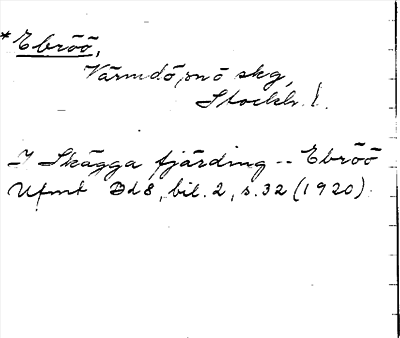 *Ebröö,
Värmdö, snö skg,
Stockh. l.
I Skägga fjärding -- Ebröö
Ufmt Dd 8, bil. 2, s. 32 (1920)